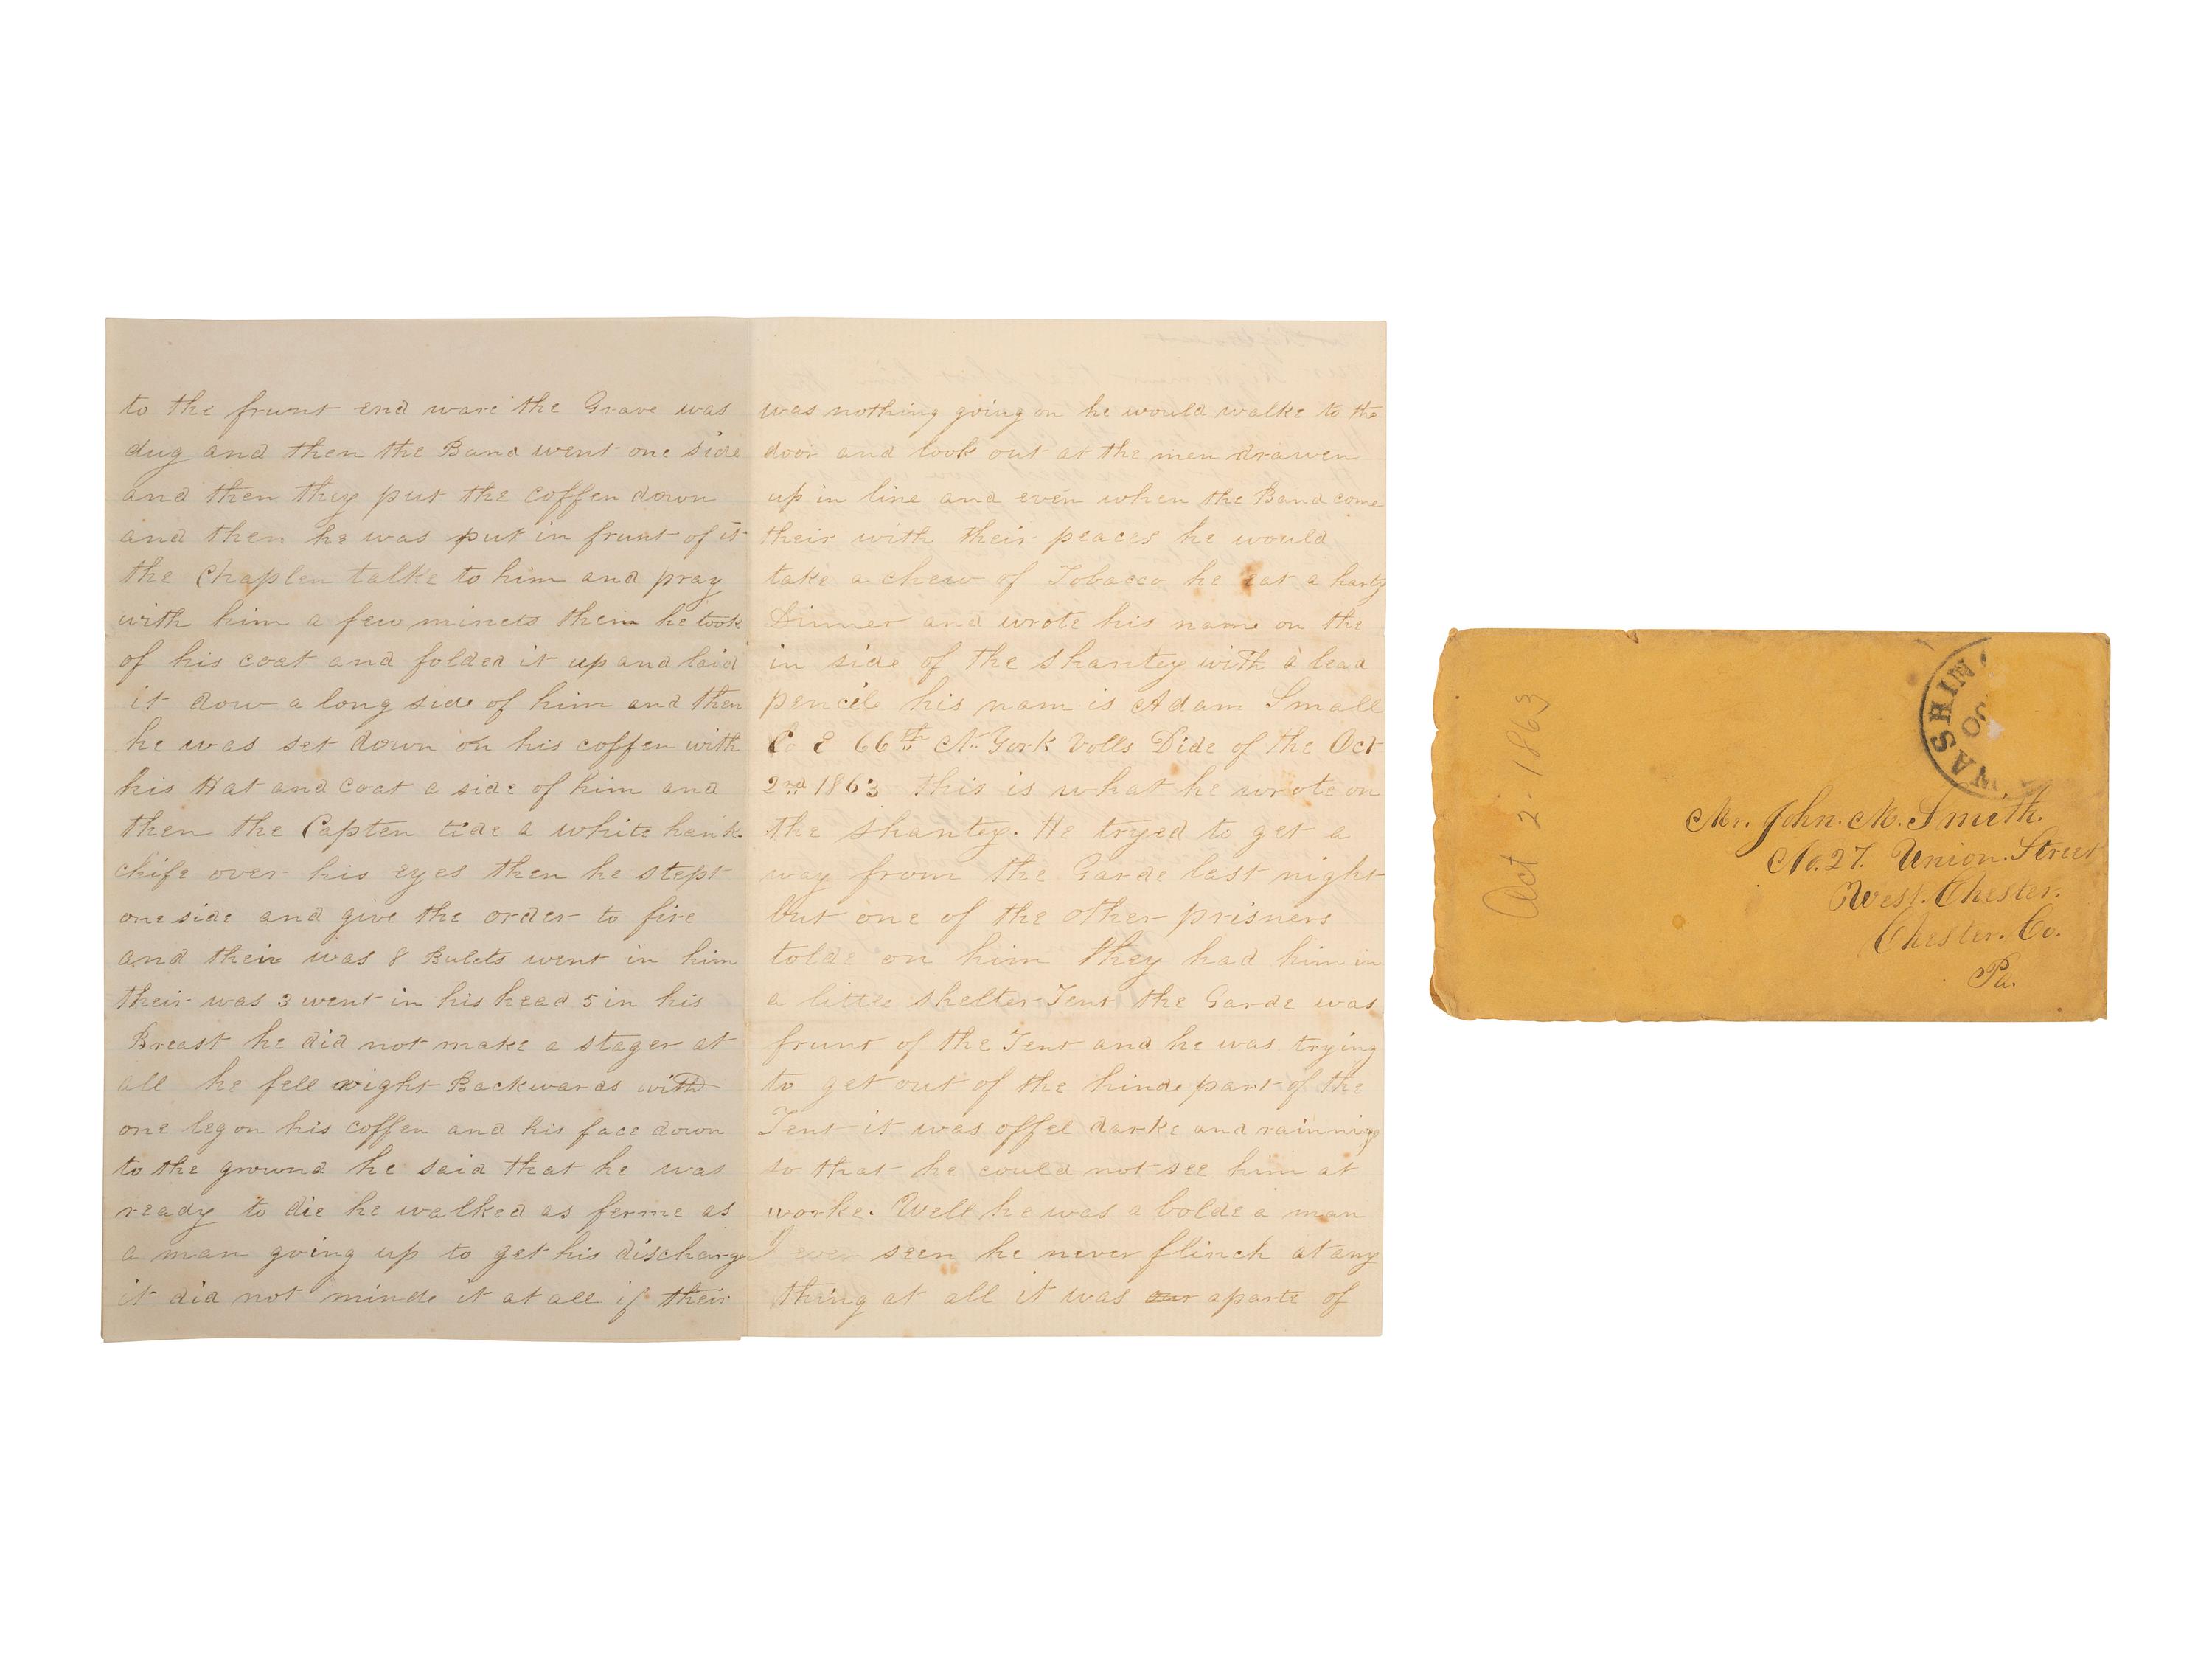 to the frunt end ware the Grave was
dug and then the Band went one side
and then they put the coffen down
and then he was put in frunt of it
the Chaplen talke to him and pray
with him a few minets then he took
of his coat and folded it up and laid
it dow a long side of him and then
he was set down on his coffen with
his Hat and Coat a side of him and
then the Capten tide a white hank
chife over his eyes then he stept
one side and give the order to fire
and their was 8 Bulets went in him
their was 3 went in his head 5 in his
Breast he did not make a stager at
all he fell right Backwards with
one leg on his coffen and his face down
to the ground he said that he was
ready to die he walked as ferme as
a man going up to get his discharge
it did not minde it at all if their
was nothing going on he would walke to the
door and look out at the men drawen
up in line and even when the Band come
their with their peaces he would
take a chew of Tobacco he eat a harty
Dinner and wrote his name on the
in side of the shantey with a lead
pencil his nam is Adam Small
Co E 66th N. York Volls Dide of the Oct
2nd 1863 this is what he wrote on
the shantey. He tryed to get a
way from the Garde last night
but one of the other prisners
tolde on him they had him in
a little shelter Tent the Garde was
frunt of the Tent and he was trying
to get out of the hinde part of the
Tent it was offel darke and rainning
so that he could not see him at
worke. Well he was a bolde a man
I ever seen he never flinch at any
thing at all it was our aparte of
Oct 2-1863
WASHIN
Mr. John. M. Smith.
No. 27. Union. Street
West. Chester.
Chester. Co.
Pa.